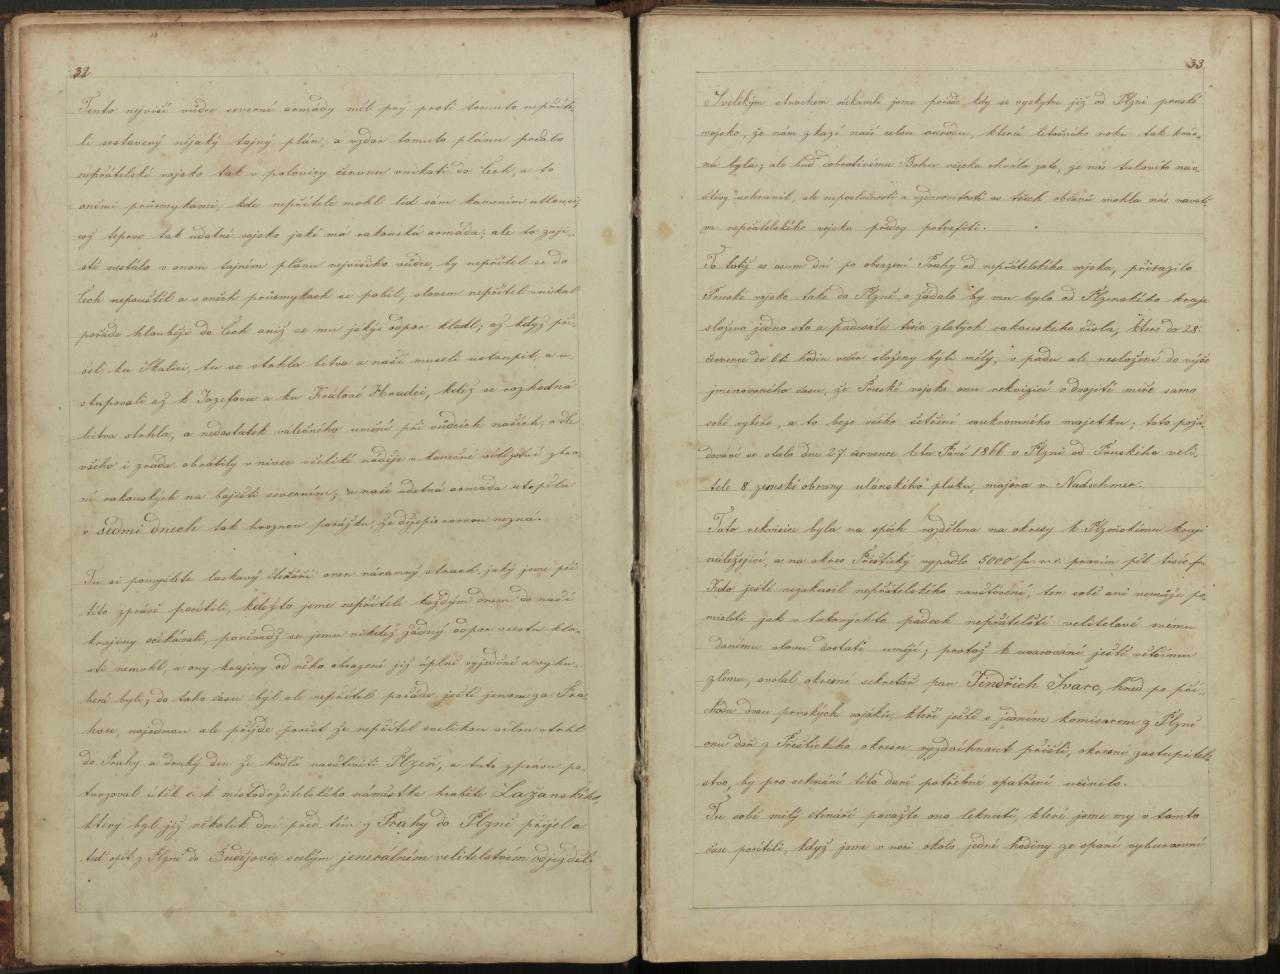 32
Tento nejvišší vůdce severné armády měl prý proti tomuto nepříte-
li sestavený nějaký tajný plán, a vzdor tomuto plánu počalo
nepřátelské vojsko tak v polovičy června vnikati do Čech, a to
oněmi průsmykami, kde nepřítele mohl lid sám kamením utlouci,
což teprve tak udatné vojsko jaké má rakouská armáda; ale to zaji-
sté nestálo v onom tajném plánu nejvisšího vůdce, by nepřítel se do
Čech nepouštěl a v oněch průsmykach se pobil, slovem nepřítel vnikal
pořáde hlouběji do Čech aniž se mu jakýs odpor kladl; až když při-
šel ku Skalici, tu se strhla bitva a naši museli ustoupit, a u-
stupovali až k Jozefovu a ku Králové Hradci, kdež se rozhodná
bitva strhla, a nedostatek válečného umění při vůdcích našich, a dle
všeho i zrada obrátily v nivec všeliké naděje v konečné vítězství zbra-
ní rakouských na bojišti severním; a naše udatná armáda utrpěla
v sedmi dnech tak hroznou porážku, že dějepis rovnou nezná.
Tu si pomyslete laskavý čtenáři onen náramný strach, jaký jsme při
této zprávě pocítili, kdežto jsme nepřítele každým dnem do naší
krajiny očekávali, poněvadž se jemu nikdež žádný odpor vcestu kla-
sti nemohl, a ony krajiny od něho obsazené již úplně vyjedené a vydran-
bené byli; do toho času byl ale nepřítel pořáde ještě jenom za Pra-
hou, najednou ale přijde pověst že nepřítel velikou silou vtrhl
do Prahy a druhý den že hodlá navštíviti Plzeň, a tuto zprávu po-
tvrzoval útěk c. k. místodržitelského náměstka hraběte Lažanského,
který byl již několik dní před tím z Prahy do Plzně přijel a
teď opět z Plzně do Budějovic scelým jenerálním velitelstvím odjížděl.
33
Svelikým strachem očekávali jsme pořáde, kdy se vyskytne již od Plzni pruské
vojsko, že nám zkazí naši celou ourodu, která letošního roku tak krás-
ná byla; ale buď dobrotivému Bohu věčka chvála zato, že nás takovéto náv-
štěvy uchránil, ale neposlušnosti a vzdorovitosti as třech občanů mohla nás návště-
va nepřátelského vojska předcy potrefiti.
To totiž as osum dní po obsazení Prahy od nepřátelského vojska, přirazilo
Pruské vojsko také do Plzně, a žádalo by mu bylo od Plzenského kraje
složeno jedno sto a padesáte tisíc zlatých rakouského čísla, které do 28.
července do 6ti hodin večer složeny býti měly, v padu ale nesložení do výše
jmenovaného času, že Pruské vojsko onu rekvizici v dvojité míře samo
sobě vybéře, a to beze všeho šetření soukromného majetku; toto poža-
dování se stalo dne 27. července léta Páně 1866 v Plzni od Pruského veli-
tele 8. zemské obrany ulánského pluku, majora v. Nadschmer.
Tato rekvisice byla na spěch rozdělena na okresy k Plzeňskému kraji
náležející, a na okres Přeštický vypadlo 5000 fr. r. č. pravím pět tisíc fr.
Kdo ještě nezakusil nepřátelského navštívení, ten sobě ani nemůže po-
misleti jak v takovýchto padech nepřátelští velitelové svému
danému slovu dostáti umějí; protož k uvarování ještě většímu
zlému, svolal okresní sekretář pan Jindřich Švarc, hned po pří-
chodu dvou pruských vojáků, kteří ještě s jedním komisarem z Plzně
onu daň z Přeštického okresu vyzdvihnout přišli, okresní zastupitel-
stvo, by pro sehnání této daně potřebné opatření učinilo.
Tu sobě milý čtenáři považte ono leknutí, které jsme my v tomto
čase pocítili, když jsme v noci okolo jedné hodiny ze spaní vyburcovní